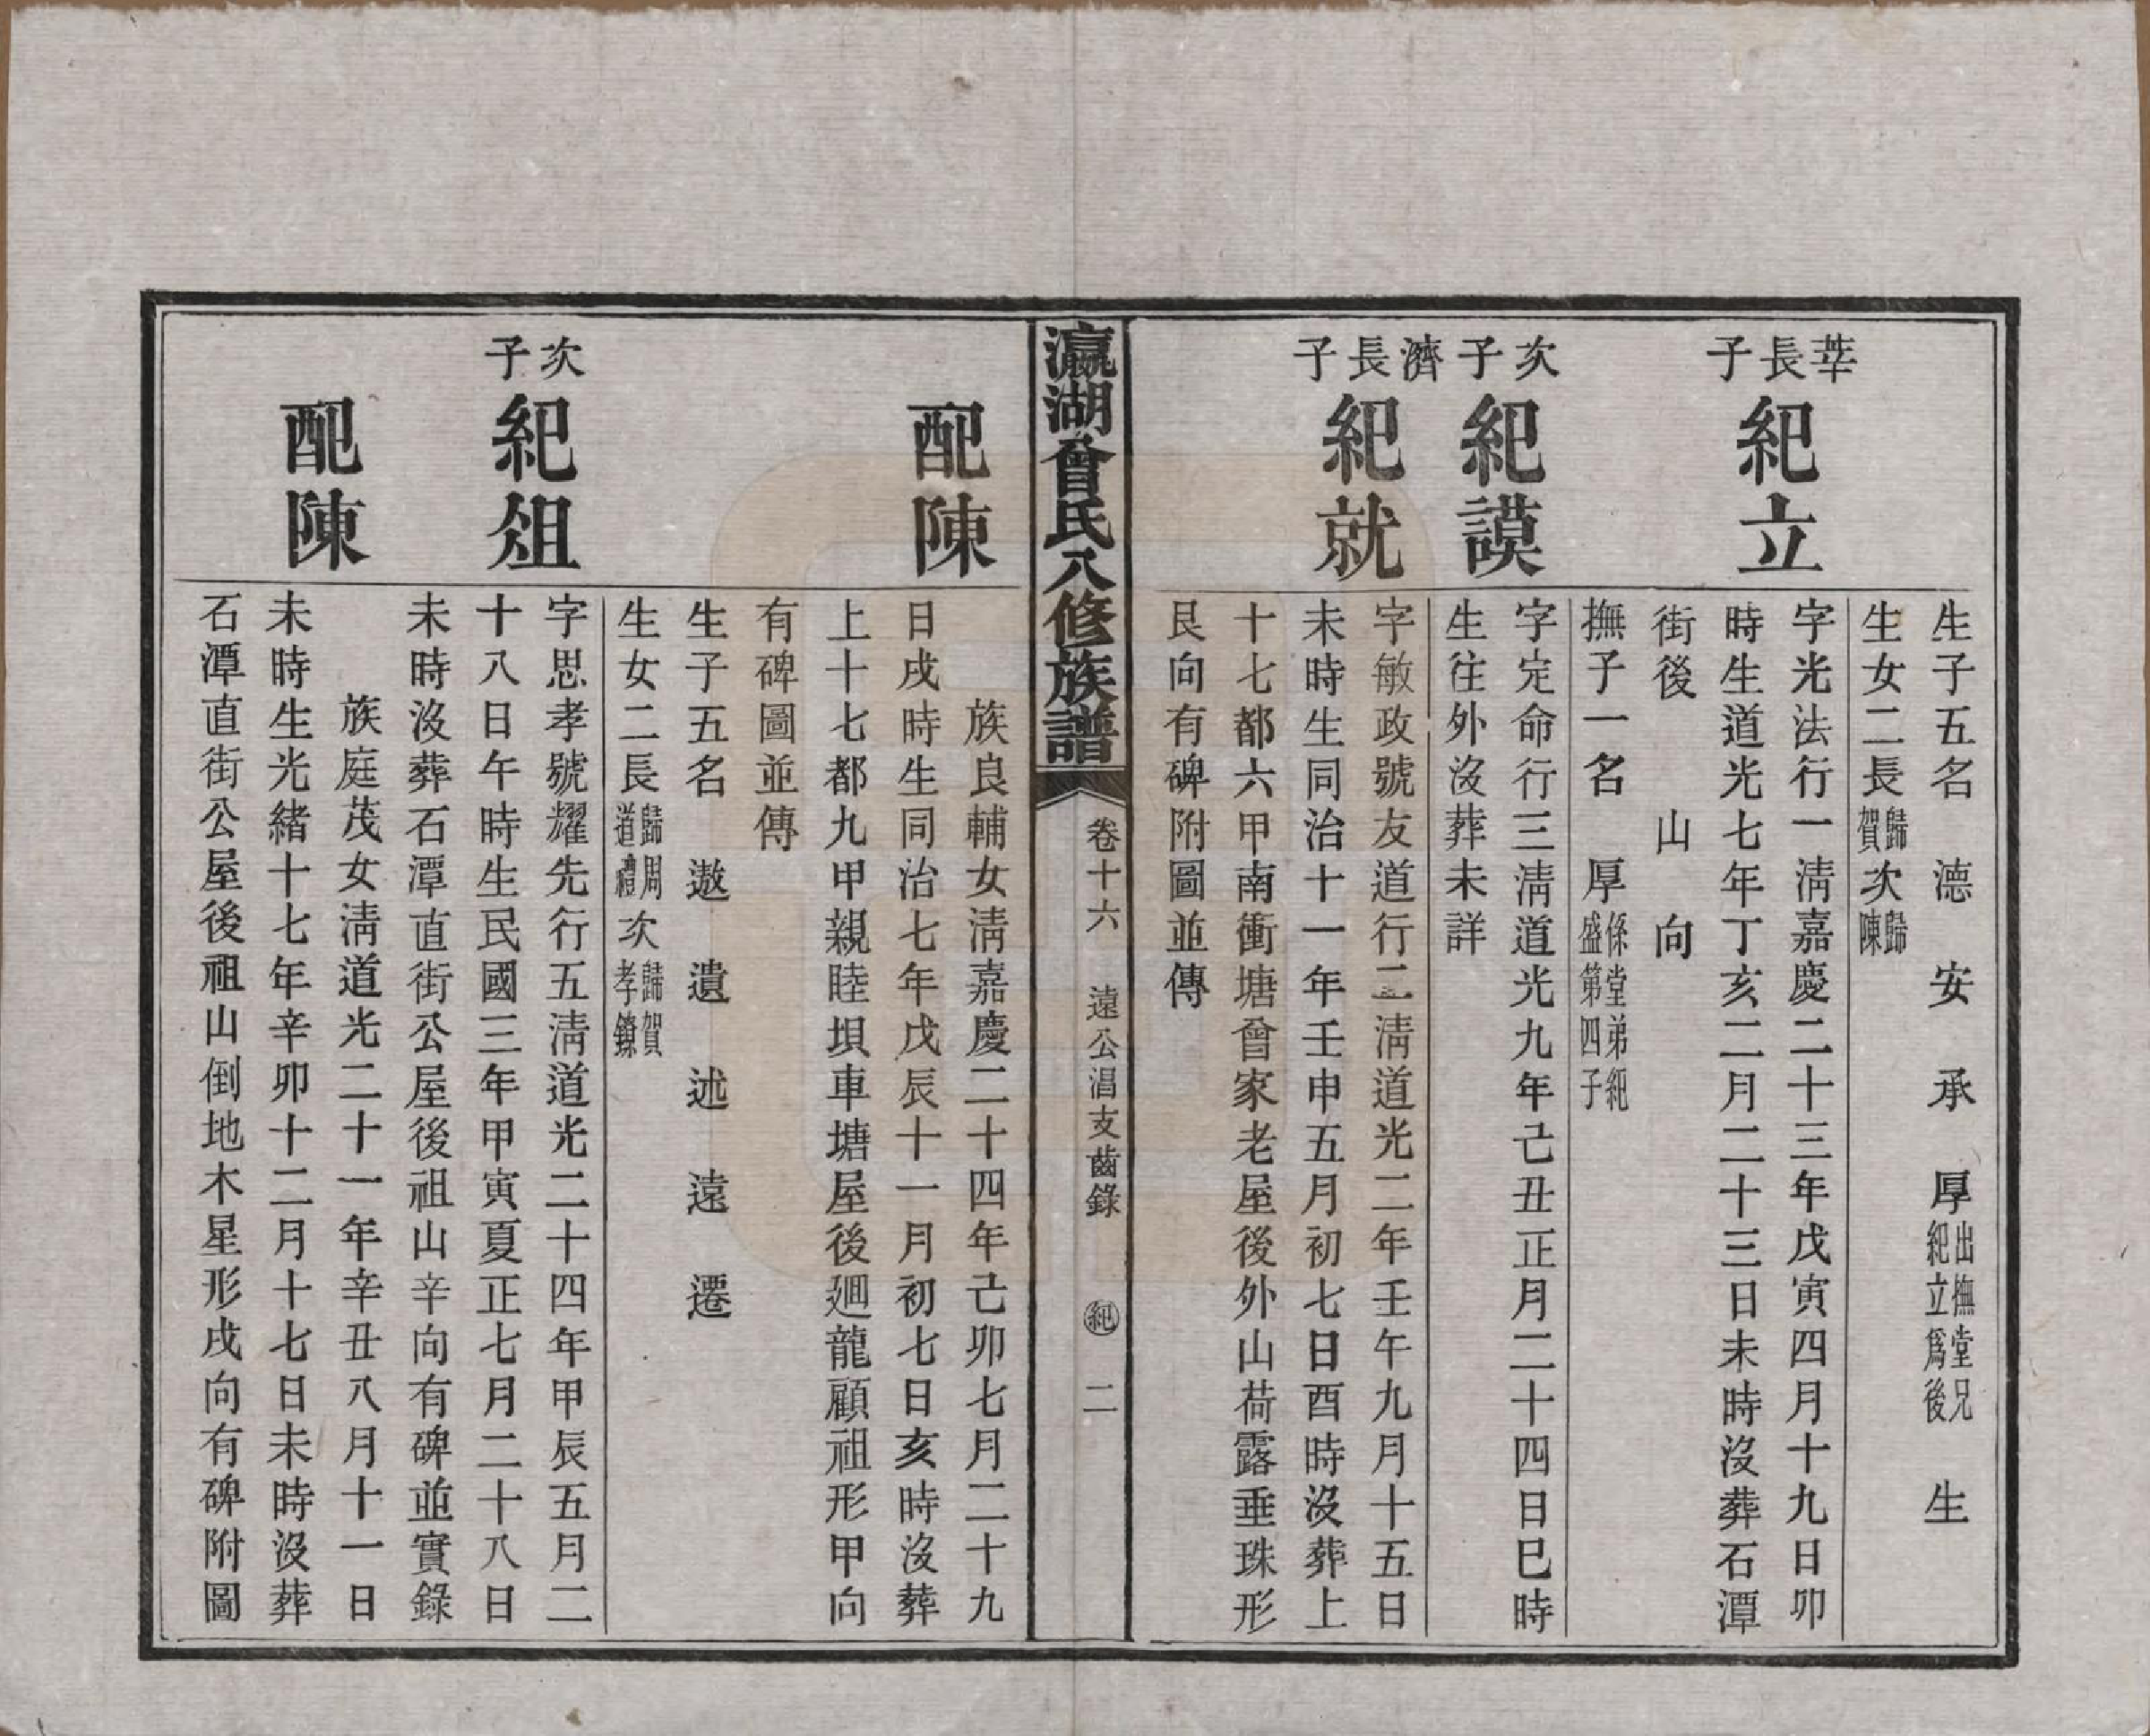 生子五名　德　安　承　厚出撫堂兄紀立爲後　生
生女二長歸賀次歸陳
莘長子
紀立
字光法行一淸嘉慶二十三年戊寅四月十九日卯
時生道光七年丁亥二月二十三日未時沒葬石潭
街後　　山　向
撫子一名　厚係堂弟紀盛第四子
次子
紀謨
字定命行三淸道光九年己丑正月二十四日巳時
生往外沒葬未詳
濟長子
紀就
字敏政號友道行二淸道光二年壬午九月十五日
未時生同治十一年壬申五月初七日酉時沒葬上
十七都六甲南衝塘曾家老屋後外山荷露垂珠形
艮向有碑附圖並傳
瀛湖曾氏八修族譜
卷十六　遠公淐支齒錄　紀　二
配陳
族良輔女淸嘉慶二十四年己卯七月二十九
日戌時生同治七年戊辰十一月初七日亥時沒葬
上十七都九甲親睦垻車塘屋後廻龍顧祖形甲向
有碑圖並傳
生子五名　遨　遺　述　遠　遷
生女二長歸周道禮次歸賀孝鐐
次子
紀俎
字思孝號耀先行五淸道光二十四年甲辰五月二
十八日午時生民國三年甲寅夏正七月二十八日
未時沒葬石潭直街公屋後祖山辛向有碑並實錄
配陳
族庭茂女淸道光二十一年辛丑八月十一日
未時生光緖十七年辛卯十二月十七日未時沒葬
石潭直街公屋後祖山倒地木星形戌向有碑附圖